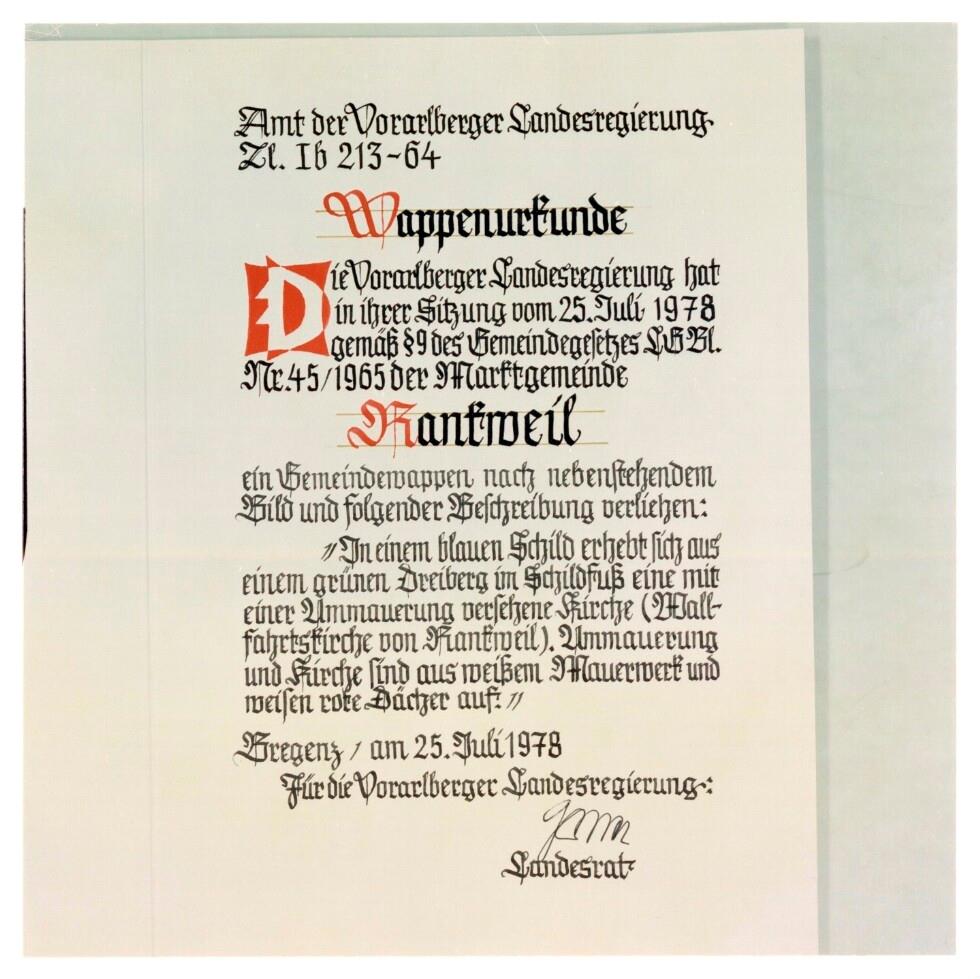 Amt der Vorarlberger Landesregierung.
Zl. Ib 213-64
Wappenurkunde
Die Vorarlberger Landesregierung hat
in ihrer Sitzung vom 25. Juli 1978
gemäß § 9 des Gemeindegesetzes LGBl.
Nr. 45/1965 der Marktgemeinde
Rankweil
ein Gemeindewappen nach nebenstehendem
Bild und folgender Beschreibung verliehen:
"In einem blauen Schild erhebt sich aus
einem grünen Dreiberg im Schildfuß eine mit
einer Ummauerung versehene Kirche (Wall-
fahrtskirche von Rankweil). Ummauerung
und Kirche sind aus weißem Mauerwerk und
weisen rote Dächer auf."
Bregenz, am 25. Juli 1978
Für die Vorarlberger Landesregierung:
Landesrat